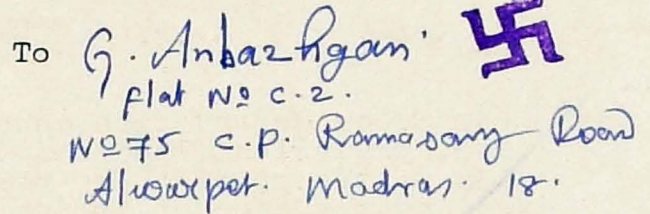 To G. Anbazhgan
Flat No C.2.
No 75 C.P. Ramasamy Road
Alwarpet. Madras. 18.